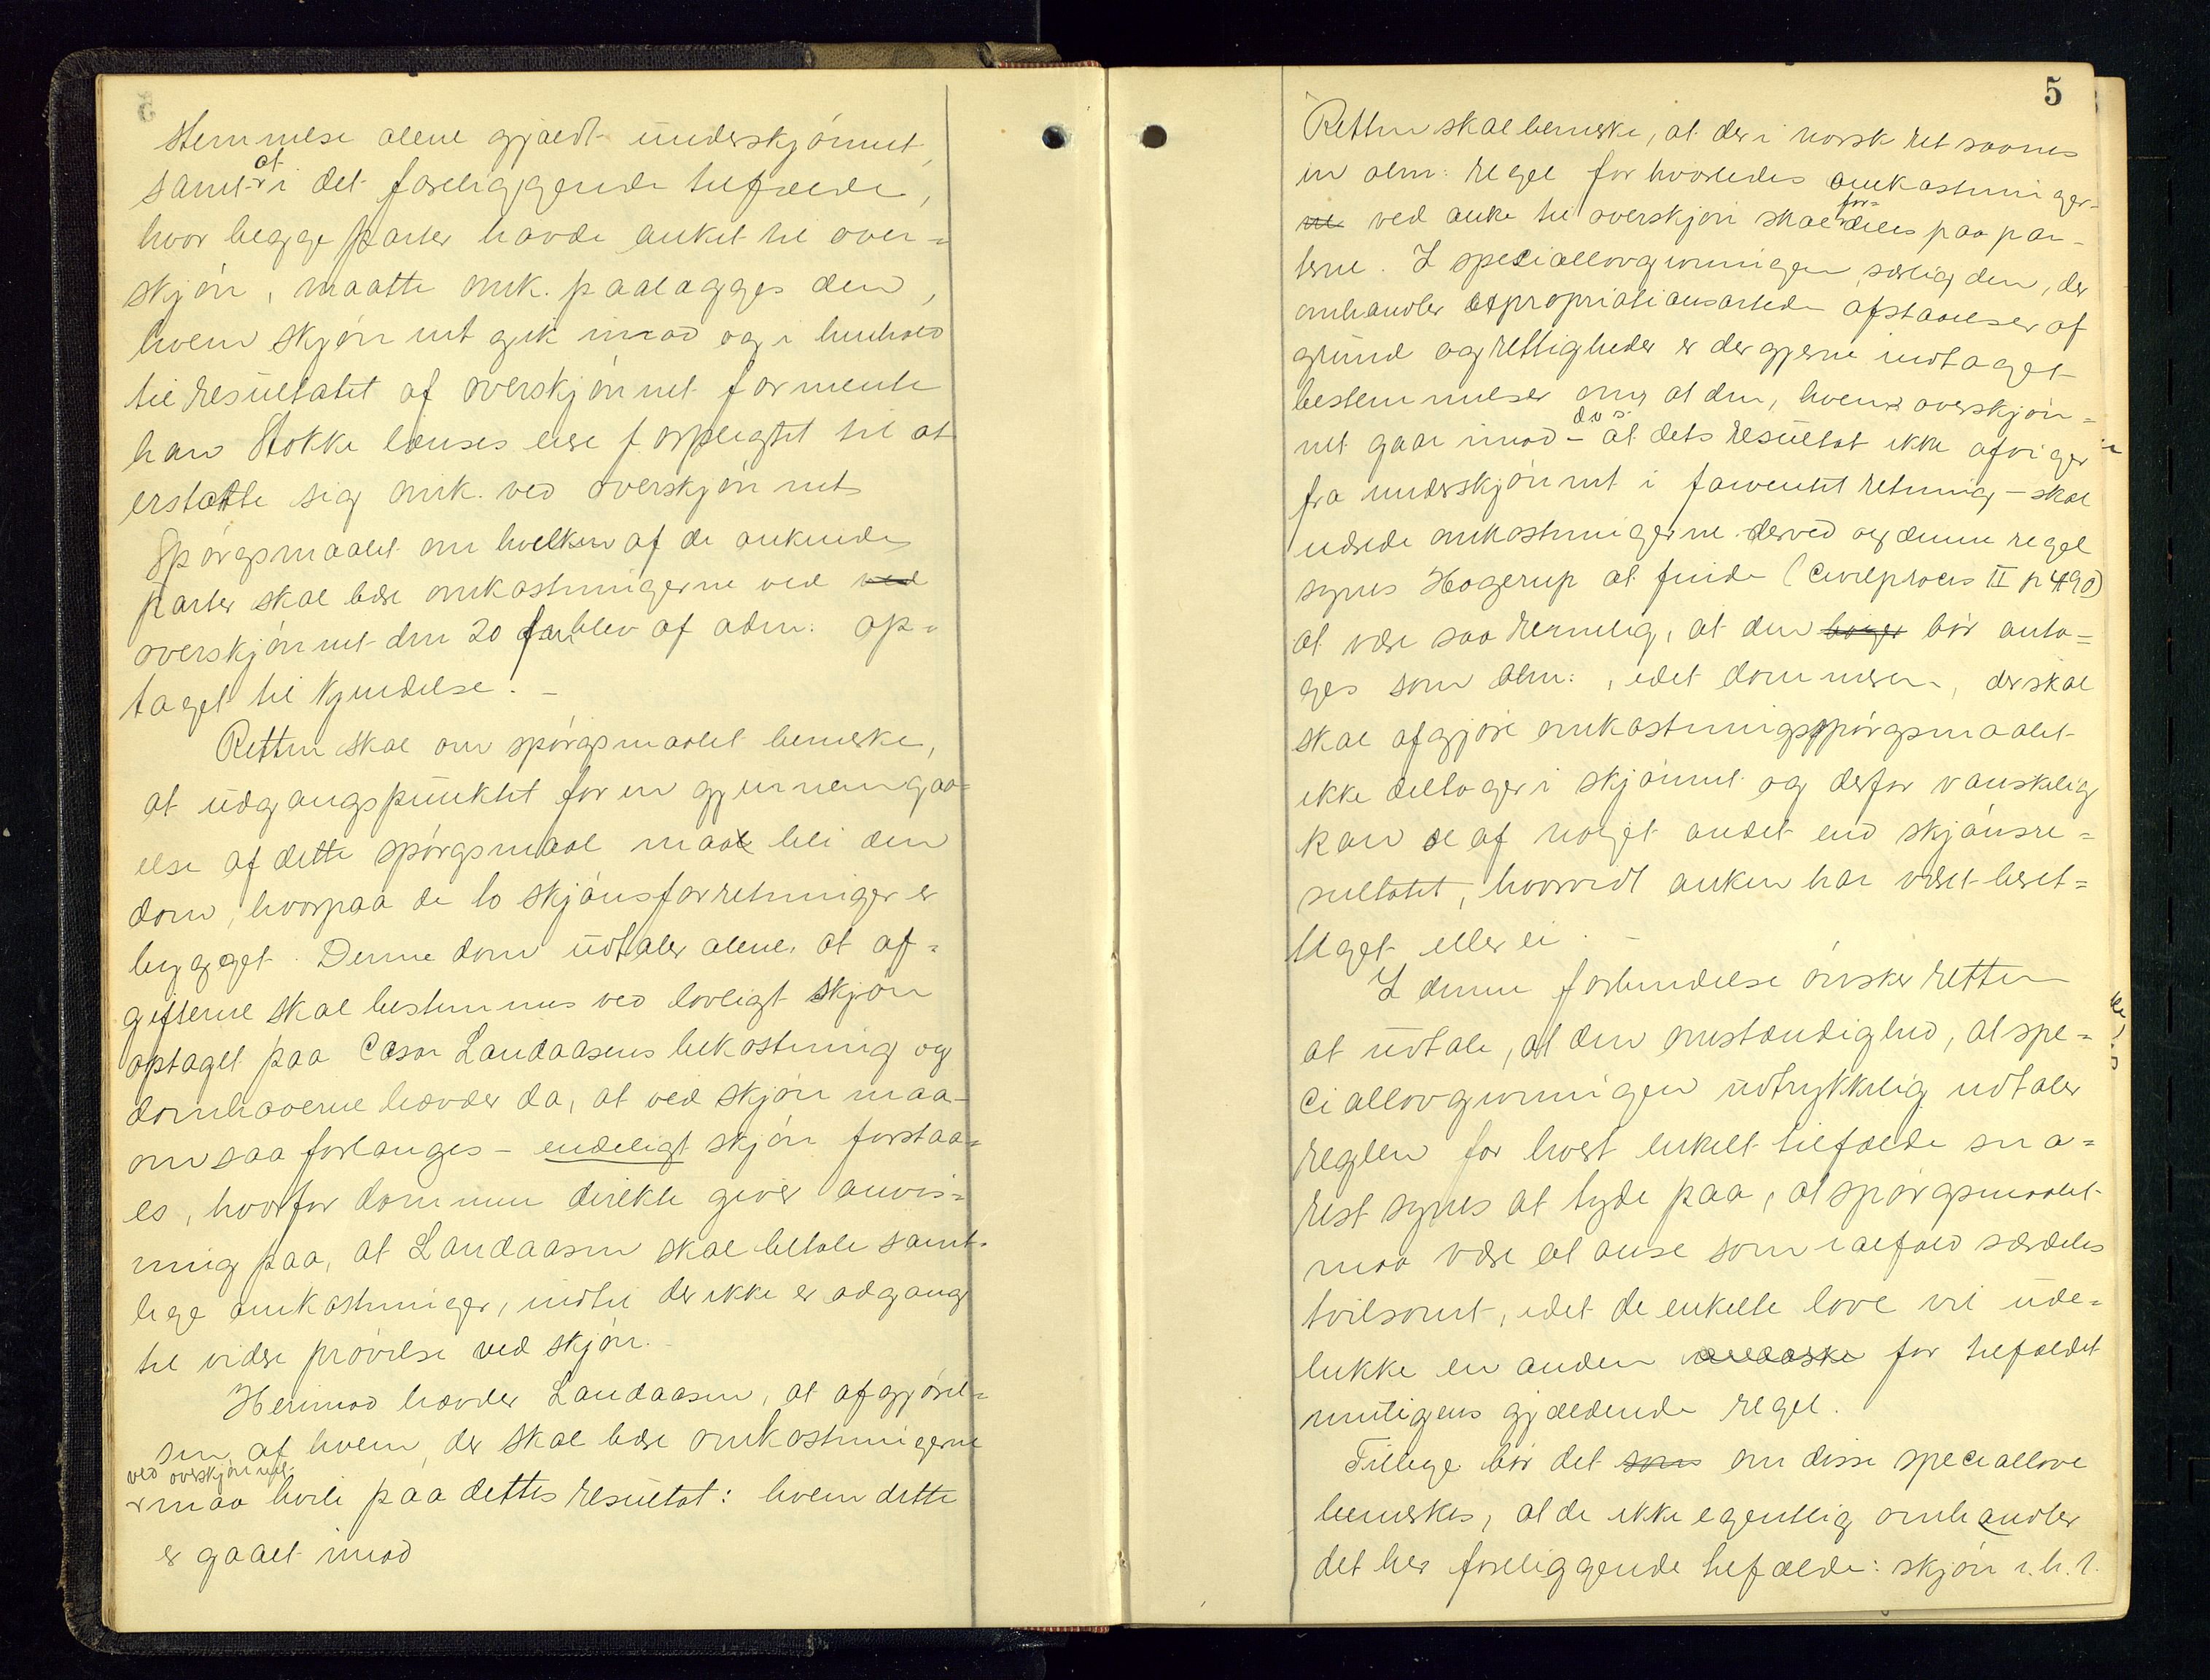 stemmelse alene gjældt underskjønnet,
samt at i det foreliggende tilfælde,
hvor begge parter havde anket til over=
skjøn, maatte omk. paalægges den,
hvem skjønnet gik imod og i henhold
til resultatet af overskjønnet formente
han Stokke lænsel eier forpligtet til at
erstatte sig omk. ved overskjønnet
Spørgsmaalet om hvilken af de ankende
parter skal bære omkostningerne ved ved
overskjønnet den 20 jan. blev af adm: op=
taget til kjendelse. –
Retten skal om spørgsmaalet bemerke,
at udgangspunktet for en gjennemgaa=
else af dette spørgsmaal maa bli den
dom, hvorpaa de to skjønsforretninger er
bygget. Denne dom udtaler alene, at af=
gifterne skal bestemmes ved lovligt skjøn
optaget paa Casar Landaasens bekostning og
domhaverne hævder da, at ved skjøn maa –
om saa forlanges – endeligt skjøn forstaa=
es, hvorfor dommen direkte giver anvis=
ning paa, at Landaasen skal betale samt=
lige omkostninger, indtil der ikke er adgang
til videre prøvelse ved skjøn.
Herimod hævder Landaasen, at afgjørel=
sen af hvem, der skal bære omkostningerne
ved overskjønnet
maa hvile paa dettes resultat: hvem dette
er gaaet imod
5
Retten skal bemerke, at der i norsk ret savnes
en alm: regel for hvorledes omkostninger=
ne ved anke til overskjøn skal for=deles paa par=
terne. I speciallovgivningen, særlig den, der
omhandler expropriationsartede afstaaelser af
grund og rettigheder er der gjerne indtaget
bestemmelser om, at den, hvem overskjøn=
net gaar imod – d.v.s. at dets resultat ikke afviger
fra underskjønnet i forventet retning – skal
udrede omkostningerne derved og denne regel
synes Hagerup at finde (Civilproces II p 490)
at være saa rimelig, at den bør anta=
ges som alm:, idet dommeren, der skal
skal afgjøre omkostningsspørgsmaalet
ikke deltager i skjønnet og derfor vanskelig
kan se af noget andet end skjønsre=
sultatet, hvorvidt anken har været beret=
tiget eller ei. –
I denne forbindelse ønsker retten
at udtale, at den omstændighed, at spe=
ciallovgivningen udtrykkelig udtaler
reglen for hvert enkelt tilfælde sna=
rest synes at tyde paa, at spørgsmaalet
maa være at anse som ialfald særdeles
tvilsomt, idet de enkelte love vil ude=
lukke en anden for tilfældet
muligens gjældende regel.
Tillige bør det som om disse speciallove
bemerkes, at de ikke egentlig omhandler
det her foreliggende tilfælde: skjøn i.h.t.